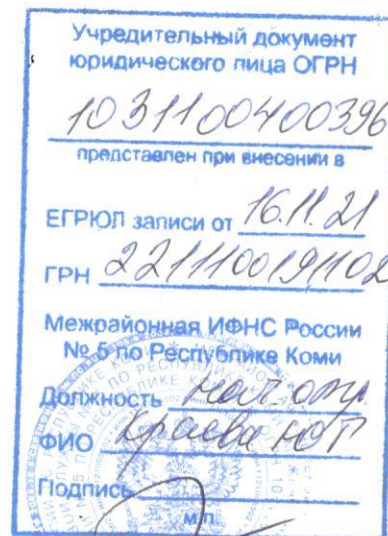 Учредительный документ
юридического лица ОГРН
1031100400396
представлен при внесении в
ЕГРЮЛ записи от 16.11.21
ГРН 2211100191102
Межрайонная ИФНС России
№ 5 по Республике Коми
Должность нач. отд.
ФИО Краева Ю Г
Подпись
М.П.